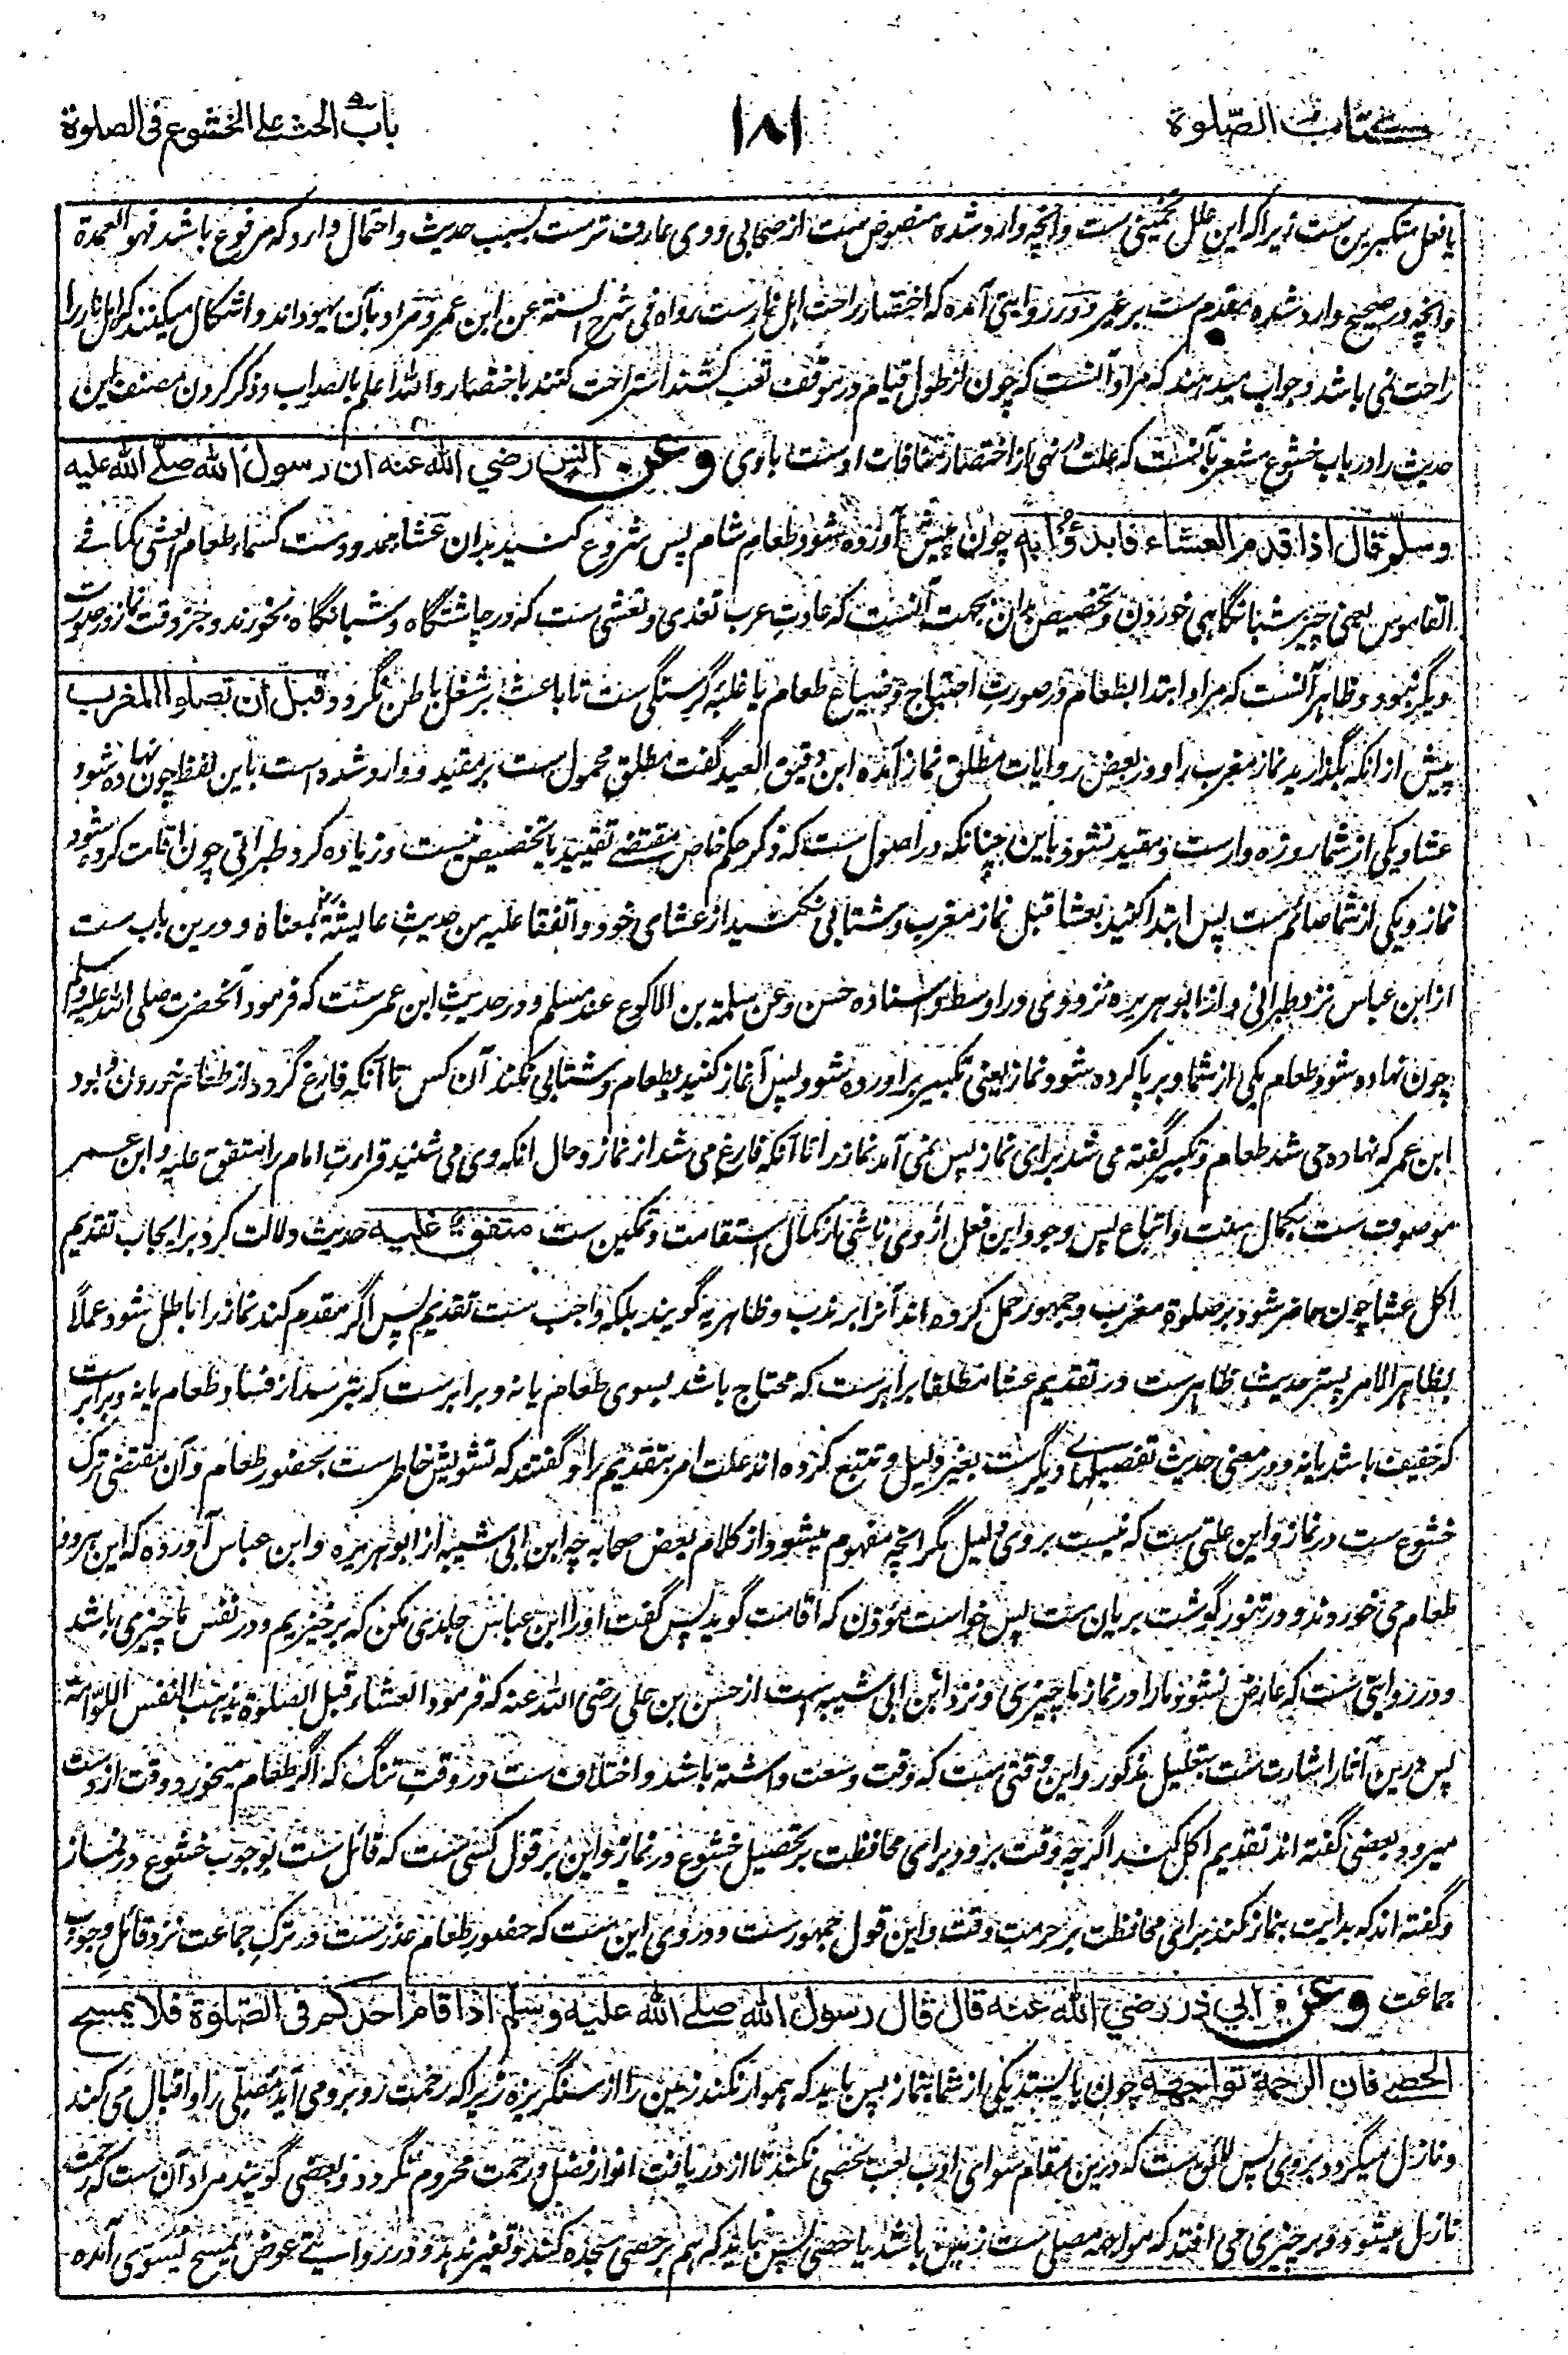 کتاب الصّلوة
١٨١
باب الحث علی الخشوع فی الصلوة
یا فعل متکبرین ست زیراکه این علل تخمینی ست و آنچه وارد شده منصوص ست از صحابی و وی عارف ترست بسبب حدیث و احتمال دارد که مرفوع باشد فهو العمدة
و آنچه در صحیح وارد شده مقدم ست بر غیر و در روایتی آمده که اختصار راحت اهل نارست رواه فی شرح السنة عن ابن عمر و مراد بآن یهود اند و اشکال میکنند که اهل نار را
راحت نمی باشد و جواب میدهند که مراد آنست که چون از طول قیام در موقف تعب کشند استراحت کنند باختصار والله اعلم بالصواب و ذکر کردن مصنف این
حدیث را در باب خشوع مشعر بآنست که علت نهی از اختصار منافات اوست باوی وعن انس رضي الله عنه ان رسول الله صلّے الله علیه
وسلّم قال اذا قدم العشاء فابدؤا به چون پیش آورده شود طعام شام پس شروع کنید بدان عشا ممدودست کسماء طعام العشی کما فے
القاموس یعنی چیز شبانگاهی خوردن و تخصیص بدان بجهت آنست که عادت عرب تغدی و تعشی ست که در چاشتگاه و شبانگاه بخورند و جز وقت نماز در صورت
دیگر نبود و ظاهر آنست که مراد ابتدا بطعام در صورت احتیاج و ضیاع طعام یا غلبۀ گرسنگی ست تا باعث بر شغل باطن نگردد قبل أن تصلوا المغرب
پیش از انکه بگذارید نماز مغرب را و در بعض روایات مطلق نماز آمده ابن دقیق العید گفت مطلق محمول ست بر مقید و وارد شده است باین لفظ چون نهاده شود
عشا و یکی از شما روزه دارست و مقید نشود باین چنانکه در اصول ست که ذکر حکم خاص مقتضے تقیید یا تخصیص نیست و زیاده کرد طبرانی چون اقامت کرده شود
نماز و یکی از شما صائم ست پس ابتدا کنید بعشا قبل نماز مغرب و شتابی نکنید از عشای خود و اتفقا علیه من حدیث عائشة بمعناه و درین باب ست
از ابن عباس نزد طبرانی و از ابو هریره نزد وی در اوسط و اسناده حسن و عن سلمة بن الاکوع عند مسلم و در حدیث ابن عمر ست که فرمود آنحضرت صلی الله علیه وسلم
چون نهاده شود طعام یکی از شما و بر پا کرده شود نماز یعنی تکبیر بر آورده شود پس آغاز کنید بطعام و شتابی نکند آن کس تا آنکه فارغ گردد از طعام خوردن و بود
ابن عمر که نهاده می شد طعام و تکبیر گفته می شد برای نماز پس نمی آمد نماز را تا آنکه فارغ می شد از نماز و حال انکه وی می شنید قراءت امام را متفق علیه و ابن عمر
موصوف ست بکمال سنت و اتباع پس وجود این فعل از وی ناشی از کمال استقامت و تمکین ست متفق علیه حدیث دلالت کرد بر ایجاب تقدیم
اکل عشا چون حاضر شود بر صلوة مغرب و جمهور حمل کرده اند آنرا بر ندب و ظاهریه گویند بلکه واجب ست تقدیم پس اگر مقدم کند نماز را باطل شود عملاً
بظاهر الامر پستر حدیث ظاهرست در تقدیم عشا مطلقا برابرست که محتاج باشد بسوی طعام یا نه و برابرست که بترسد از فساد طعام یا نه و برابر ست
که خفیف باشد یا نه و در معنی حدیث تفصیلهای دیگرست بغیر دلیل و تتبع کرده اند علت امر بتقدیم را و گفتند که تشویش خاطر ست بحضور طعام و آن مقتضی ترک
خشوع ست در نماز و این علتی ست که نیست بر وی دلیل مگر انچه مفهوم میشود از کلام بعض صحابه چه ابن ابی شیبه از ابو هریره و ابن عباس آورده که این هر دو
طعام می خوردند و در تنور گوشت بریان ست پس خواست مؤذن که اقامت گوید پس گفت او را ابن عباس جلدی مکن که بر خیزیم و در نفس ما چیزی باشد
و در روایتی ست که عارض نشود ما را در نماز ما چیزی و نزد ابن ابی شیبه است از حسن بن علی رضی الله عنه که فرمود العشاء قبل الصلوة یذهب النفس اللوّامة
پس درین آثار اشارت ست بتعلیل مذکور و این وقتی ست که وقت وسعت داشته باشد و اختلاف ست در وقت تنگ که اگر طعام میخورد وقت از دست
میرود بعضی گفته اند تقدیم اکل کند اگرچه وقت برود برای محافظت بر تحصیل خشوع در نماز و این بر قول کسی ست که قائل ست بوجوب خشوع در نماز
و گفته اند که بدایت بنماز کند برای محافظت بر حرمت وقت و این قول جمهورست و در وی این ست که حضور طعام عذرست در ترک جماعت نزد قائل وجوب
جماعت وعن ابي ذر رضي الله عنه قال قال رسول الله صلے الله علیه وسلم اذا قام احدکم فی الصّلوة فلا یمسح
الحصے فان الرحمة تواجهه چون بایستد یکی از شما بنماز پس باید که هموار نکند زمین را از سنگریزه زیراکه رحمت روبرو می آید مصلی را و اقبال می کند
و نازل میگردد بر وی پس لائق ست که درین مقام سوای ادب لعب بحصی نکند تا از دریافت انوار فضل و رحمت محروم نگردد و بعضی گویند مراد آن ست که رحمت
نازل میشود و بر چیزی می افتد که مواجه مصلی ست زمین باشد یا حصی پس باید که هم بر حصی سجده کند و تغیر ندهد و در روایتے عوض یمسح یسوی آمده